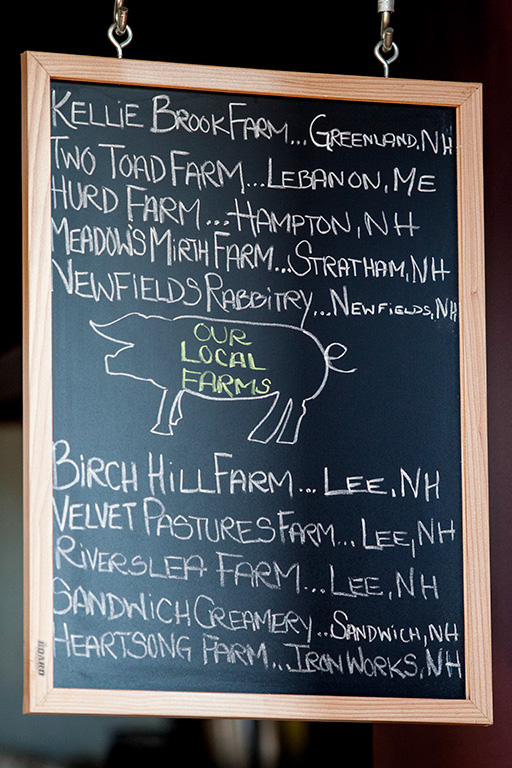 KELLIE BROOK FARM...GREENLAND, NH
TWO TOAD FARM...LEBANON, ME
HURD FARM...HAMPTON, NH
MEADOW'S MIRTH FARM...STRATHAM, NH
NEWFIELDS RABBITRY...NEWFIELDS, NH
OUR
LOCAL
FARMS
BIRCH HILL FARM...LEE, NH
VELVET PASTURES FARM...LEE, NH
RIVERSLEA FARM...LEE, NH
SANDWICH CREAMERY...SANDWICH, NH
HEARTSONG FARM...IRON WORKS, NH